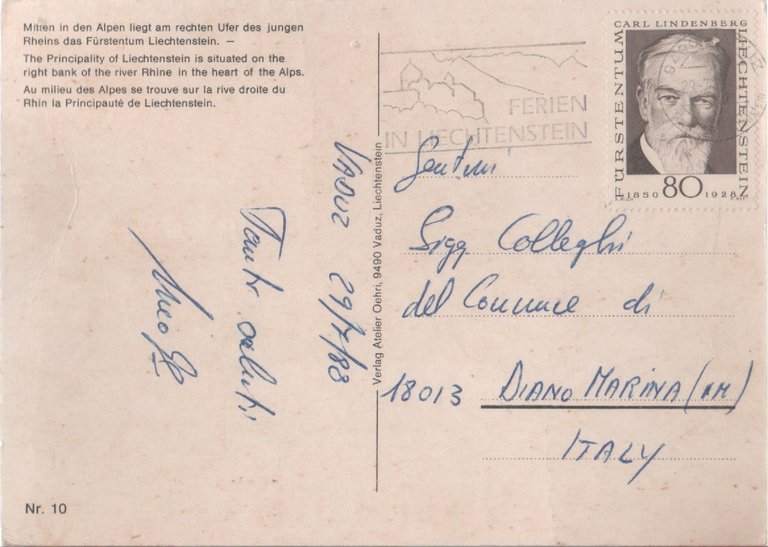 Mitten in den Alpen liegt am rechten Ufer des jungen
Rheins das Fürstentum Liechtenstein. –
The Principality of Liechtenstein is situated on the
right bank of the river Rhine in the heart of the Alps.
Au milieu des Alpes se trouve sur la rive droite du
Rhin la Principauté de Liechtenstein.
VADUZ 29/7/83
Tanti saluti
Nr. 10
Verlag Atelier Oehri, 9490 Vaduz, Liechtenstein
FERIEN
IN LIECHTENSTEIN
CARL LINDENBERG
FÜRSTENTUM
LIECHTENSTEIN
1850 80 1928
Gent.mi
Sigg Colleghi
del Comune di
18013 DIANO MARINA (IM)
ITALY